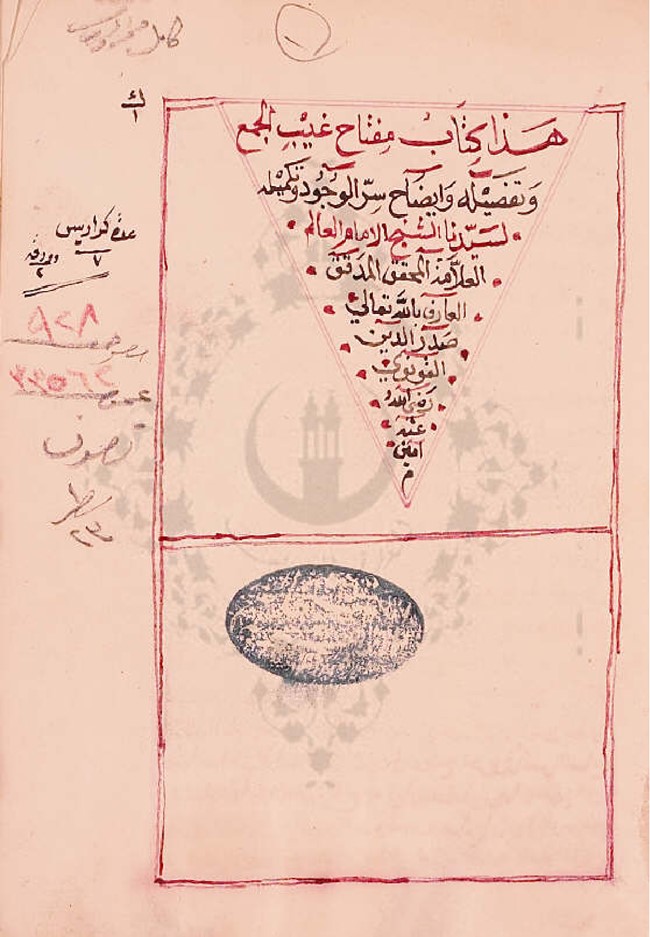 هذا كتاب مفتاح غيب الجمع
وتفصيله وايضاح سر الوجود وتكميله
لسيدنا الشيخ الامام العالم
العلامة المحقق المدقق
العارف بالله تعالى
صدر الدين
القونوي
رضي الله
عنه
امين
م
عدة كراريس
٧
٩٢٨
٣٣٥٦٢
تصوف